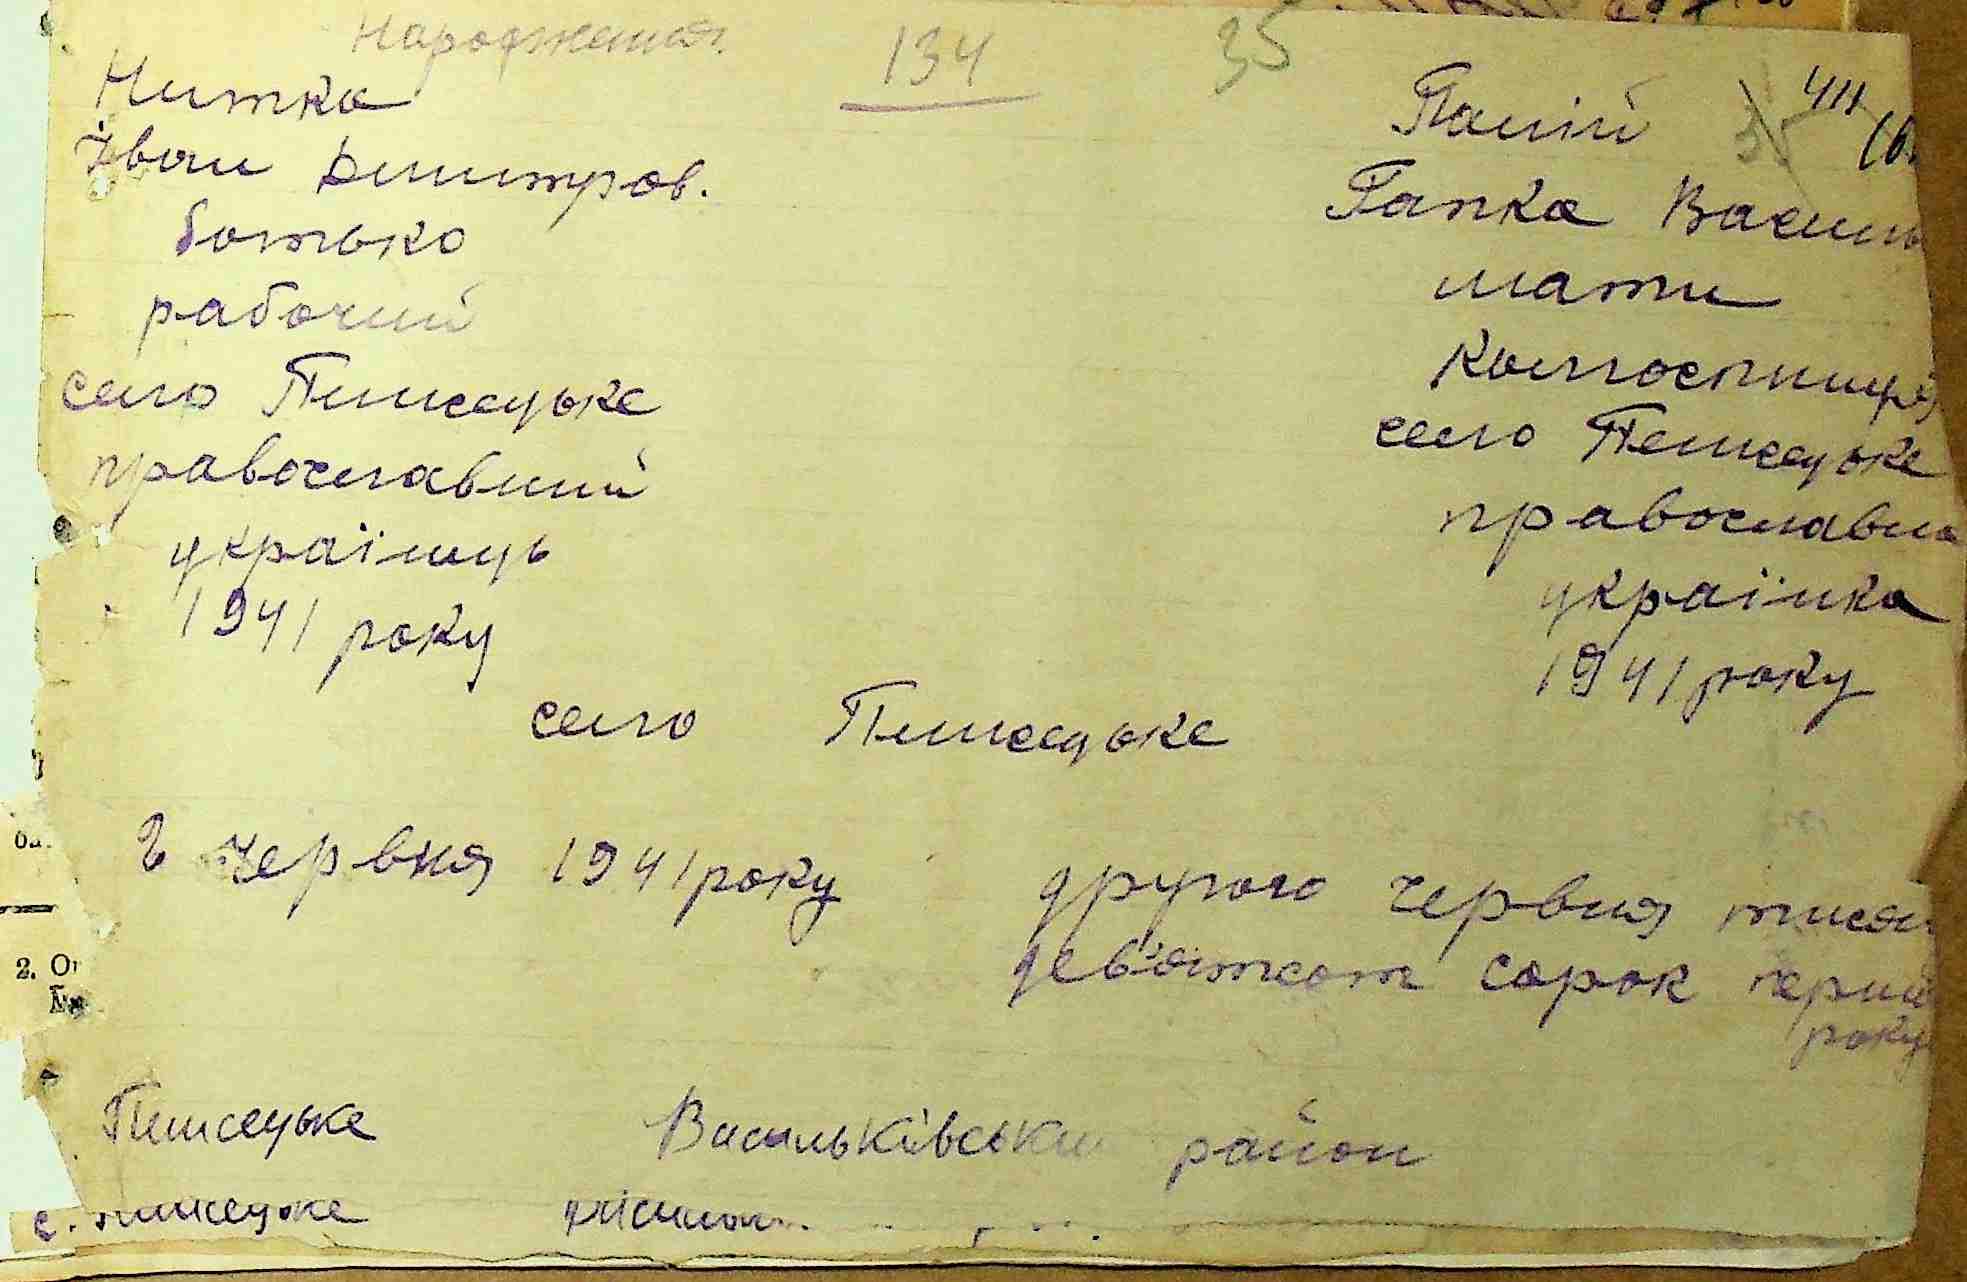 Народження.
134
35
Нитка
Іван Дмитров.
батько
рабочий
село Плисецьке
православний
українець
1941 року
Палій
Гапка Василь
мати
колгоспниця
село Плисецьке
православна
українка
1941 року
село Плисецьке
2 червня 1941 року
другого червня тисяч
дев'ятсот сорок перш
року
Плисецьке Васильківський район
с. Плисецьке
2. Ог